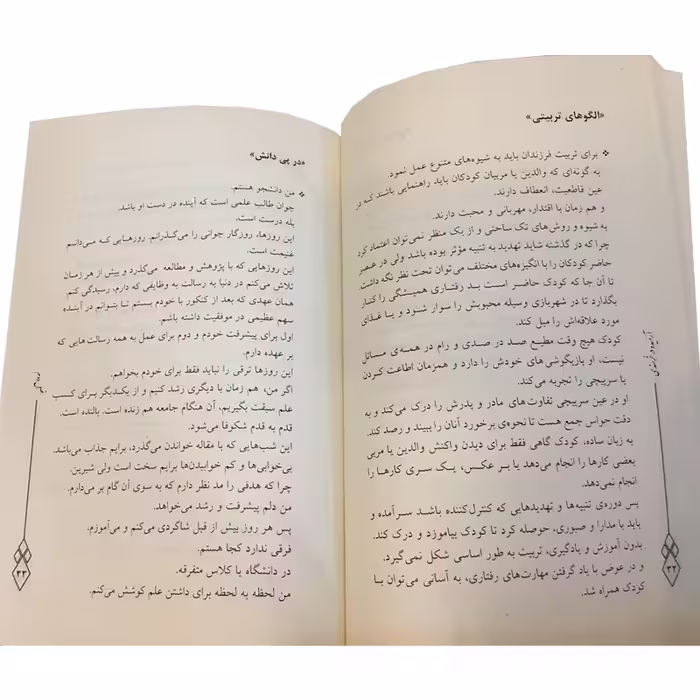 «الگوهای تربیتی»
❖ برای تربیت فرزندان باید به شیوه‌های متنوع عمل نمود.
به گونه‌ای که والدین یا مربیان کودکان باید راهنمایی باشند که در
عین قاطعیت، انعطاف دارند.
و هم زمان با اقتدار، مهربانی و محبت دارند.
به شیوه و روش‌های تک ساحتی و از یک منظر نمی‌توان اعتماد کرد
چرا که در گذشته شاید تهدید به تنبیه مؤثر بوده باشد ولی در عصر
حاضر کودکان را با انگیزه‌های مختلف می‌توان تحت نظر نگه داشت
تا آن جا که کودک حاضر است بد رفتاری همیشگی را کنار
بگذارد تا در شهربازی وسیله محبوبش را سوار شود و یا غذای
مورد علاقه‌اش را میل کند.
کودک هیچ وقت مطیع صد در صدی و رام در همه‌ی مسائل
نیست، او بازیگوشی های خودش را دارد و همزمان اطاعت کردن
یا سرپیچی را تجربه می‌کند.
او در عین سرپیچی تفاوت‌های مادر و پدرش را درک می‌کند و به
دقت حواس جمع هست تا نحوه‌ی برخورد آنان را ببیند و رصد کند.
به زبان ساده، کودک گاهی فقط برای دیدن واکنش والدین یا مربی
بعضی کارها را انجام می‌دهد یا بر عکس، یک سری کارها را
انجام نمی‌دهد.
پس دوره‌ی تنبیه‌ها و تهدیدهایی که کنترل‌کننده باشد سرآمده و
باید با مدارا و صبوری، حوصله کرد تا کودک بیاموزد و درک کند.
بدون آموزش و یادگیری، تربیت به طور اساسی شکل نمی‌گیرد.
و در عوض با یاد گرفتن مهارت‌های رفتاری، به آسانی می‌توان با
کودک همراه شد.
۳۲
«در پی دانش»
❖ من دانشجو هستم.
جوان طالب علمی است که آینده در دست او باشد.
بله درست است.
این روزها، روزگار جوانی را می‌گذرانم. روزهایی که می‌دانم
غنیمت است.
این روزهایی که با پژوهش و مطالعه می‌گذرد و بیش از هر زمان
تلاش می‌کنم در دنیا به رسالت به وظایفی که دارم، رسیدگی کنم.
همان عهدی که بعد از کنکور با خودم بستم تا بتوانم در آینده
سهم عظیمی در موفقیت داشته باشم.
اول برای پیشرفت خودم و دوم برای عمل به همه رسالت هایی که
بر عهده دارم.
این روزها ترقی را نباید فقط برای خودم بخواهم.
اگر من، هم زمان با دیگری رشد کنم و از یکدیگر برای کسب
علم سبقت بگیریم، آن هنگام جامعه هم زنده است. بالنده است.
قدم به قدم شکوفا می‌شود.
این شب‌هایی که با مقاله خواندن می‌گذرد، برایم جذاب می‌باشد.
بی‌خوابی‌ها و کم خوابیدن‌ها برایم سخت است ولی شیرین.
چرا که هدفی را مد نظر دارم که به سوی آن گام بر می‌دارم.
من دلم پیشرفت و رشد می‌خواهد.
پس هر روز بیش از قبل شاگردی می‌کنم و می‌آموزم.
فرقی ندارد کجا هستم.
در دانشگاه یا کلاس متفرقه.
من لحظه به لحظه برای داشتن علم کوشش می‌کنم.
۳۳